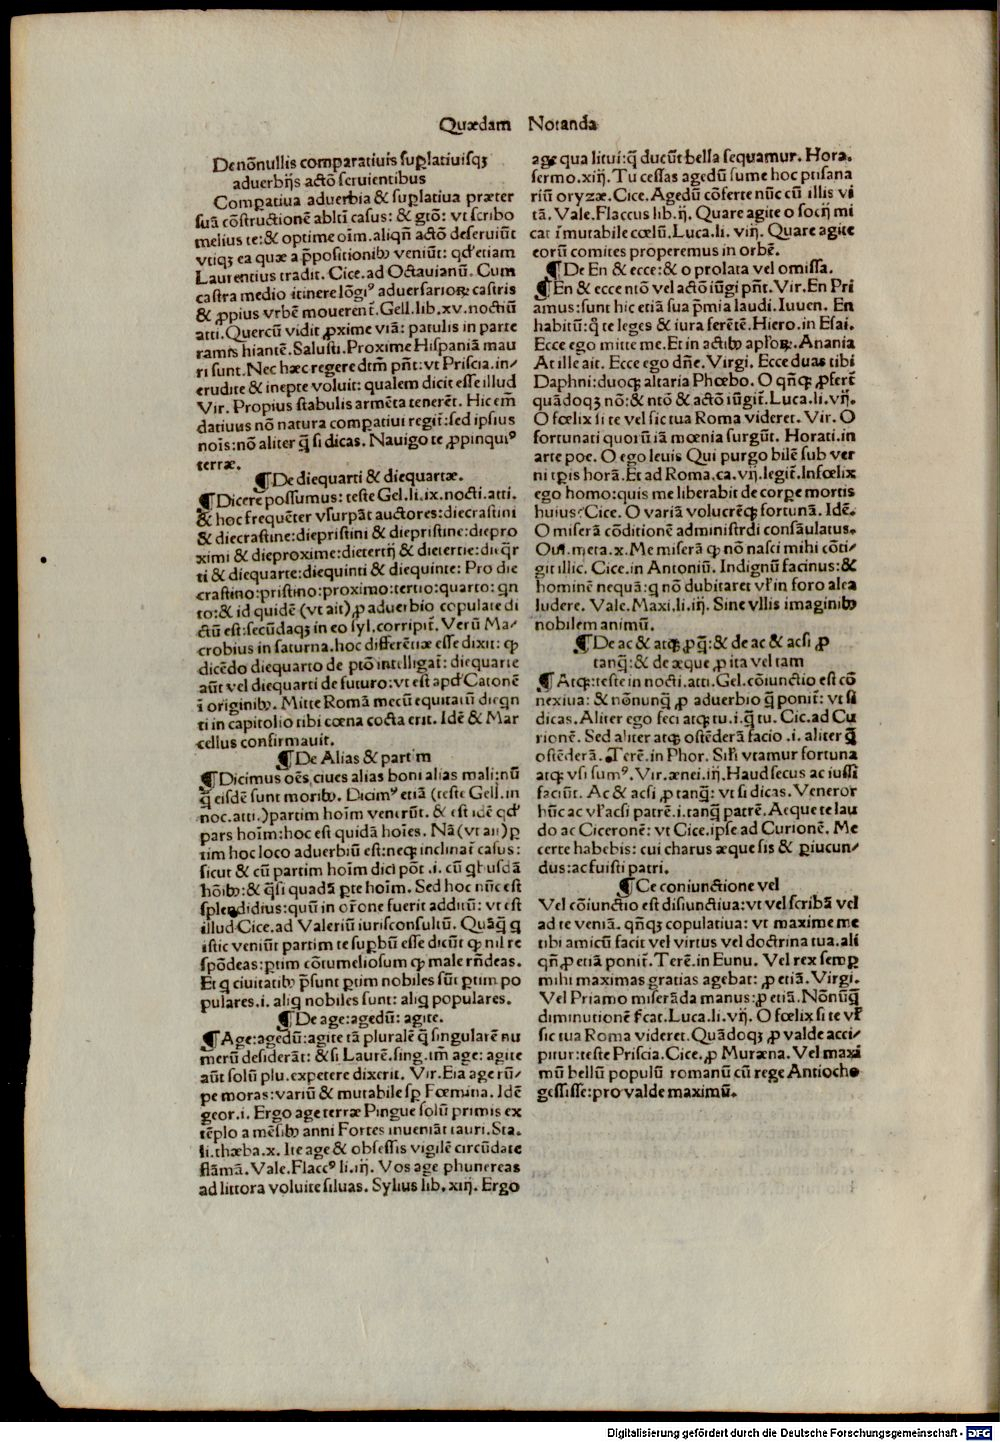 Quædam Notanda
De nõnullis comparatiuis suꝑlatiuisqꝫ
aduerbijs actõ seruientibus
Compatiua aduerbia & suꝑlatiua præter
suã cõstructionē ablti casus: & gtõ: vt scribo
melius te: & optime oĩm. aliqñ actõ deseruiũt
vtiqꝫ ea quæ a p̃positionibꝰ veniũt: qđ etiam
Laurentius tradit. Cice. ad Octauianũ. Cum
castra medio itinere lõgiꝰ aduersarioꝝ castris
& ꝓpius vrbē mouerent̃. Gell. lib. xv. noctiũ
atti. Quercũ vidit ꝓxime viã: patulis in parte
ramis hiantē. Salusti. Proxime Hispaniã mau
ri sunt. Nec hæc regere dtm̃ pñt: vt Priscia. in/
erudite & inepte voluit: qualem dicit esse illud
Vir. Propius stabulis armēta tenerēt. Hic em̃
datiuus nõ natura compatiui regit̃: sed ipsius
nois: nõ aliter q̃ si dicas. Nauigo te ꝓpinquiꝰ
terræ.
¶ De diequarti & diequartæ.
¶ Dicere possumus: teste Gel. li. ix. nocti. atti.
& hoc frequēter vsurpãt auctores: diecrastini
& diecrastine: diepristini & diepristine: diepro
ximi & dieproxime: dietertij & dietertie: dieq̃r
ti & diequarte: diequinti & diequinte: Pro die
crastino: pristino: proximo: tertio: quarto: qn
to: & id quidē (vt ait) ꝓ aduerbio copulate di
ctũ est: secũdaqꝫ in eo syl. corripit̃. Verũ Ma/
crobius in saturna. hoc differētiæ esse dixit: ꝙ
dicēdo diequarto de ptõ intelligat̃: diequarte
aũt vel diequarti de futuro: vt est apđ Catonē
ĩ originibꝰ. Mitte Romã mecũ equitatũ dieqn
ti in capitolio tibi cœna cocta erit. Idē & Mar
cellus confirmauit.
¶ De Alias & partim
¶ Dicimus oēs ciues alias boni alias mali: nũ
q̃ eisdē sunt moribꝰ. Dicimꝰ etiã (teste Gell. in
noc. atti.) partim hoĩm venerũt. & est idē qđ
pars hoĩm: hoc est quidã hoĩes. Nã (vt ait) ꝑ
tim hoc loco aduerbiũ est: neqꝫ inclinat̃ casus:
sicut & cũ partim hoĩm dici põt .i. cũ qbusdã
hõĩbꝰ: & q̃si quadã ꝑte hoĩm. Sed hoc nũc est
splendidius: quũ in or̃one fuerit additũ: vt est
illud Cice. ad Valeriũ iurisconsultũ. Quãq̃ q
istic veniũt partim te suꝑbũ esse dicũt ꝙ nil re
spõdeas: ꝑtim cõtumeliosum ꝙ male rñdeas.
Et q ciuitatibꝰ p̃sunt ꝑtim nobiles sũt ꝑtim po
pulares. i. aliq nobiles sunt: aliq populares.
¶ De age: agedũ: agite.
¶ Age: agedũ: agite tã pluralē q̃ singularē nu
merũ desiderãt: & si Laurē. sing. tm̃ age: agite
aũt solũ plu. expetere dixerit. Vir. Eia age rũ/
pe moras: variũ & mutabile sꝑ Fœmina. Idē
geor. i. Ergo age terræ Pingue solũ primis ex
tēplo a mēsibꝰ anni Fortes inueniãt tauri. Sta.
li. thæba. x. Ite age & obsessis vigilē circũdate
flãmã. Vale. Flaccꝰ li. iij. Vos age phunereas
ad littora voluite siluas. Sylius lib. xiij. Ergo
age qua litui: q̃ ducũt bella sequamur. Hora.
sermo. xiij. Tu cessas agedũ sume hoc ptisana
riũ oryzæ. Cice. Agedũ cõferte nũc cũ illis vi
tã. Vale. Flaccus lib. ij. Quare agite o socij mi
cat ĩmutabile cœlũ. Luca. li. viij. Quare agite
eorũ comites properemus in orbē.
¶ De En & ecce: & o prolata vel omissa.
¶ En & ecce ntõ vel actõ iũgi pñt. Vir. En Pri
amus: sunt hic etiã sua p̃mia laudi. Iuuen. En
habitũ: q̃ te leges & iura ferētē. Hiero. in Esai.
Ecce ego mitte me. Et in actibꝰ apl̃oꝝ. Anania
At ille ait. Ecce ego dñe. Virgi. Ecce duas tibi
Daphni: duoqꝫ altaria Phœbo. O qñqꝫ ꝓfert̃
quãdoqꝫ nõ: & ntõ & actõ iũgit̃. Luca. li. vij.
O fœlix si te vel sic tua Roma videret. Vir. O
fortunati quorũ iã mœnia surgũt. Horati. in
arte poe. O ego leuis Qui purgo bilē sub ver
ni tꝑis horã. Et ad Roma. ca. vij. legit̃. Infœlix
ego homo: quis me liberabit de corꝑe mortis
huius: Cice. O variã volucrēqꝫ fortunã. Idē.
O miserã cõditionē administrãdi consulatus.
Oui. meta. x. Me miserã ꝙ nõ nasci mihi cõti/
git illic. Cice. in Antoniũ. Indignũ facinus: &
hominē nequã: q nõ dubitaret vl̃ in foro alea
ludere. Vale. Maxi. li. iij. Sine vllis imaginibꝰ
nobilem animũ.
¶ De ac & atqꝫ ꝓ q̃: & de ac & acsi ꝓ
tanq̃: & de æque ꝓ ita vel tam
¶ Atqꝫ: teste in nocti. atti. Gel. cõiunctio est cõ
nexiua: & nõnunq̃ ꝓ aduerbio q̃ ponit̃: vt si
dicas. Aliter ego feci atqꝫ tu. i. q̃ tu. Cic. ad Cu
rionē. Sed aliter atqꝫ ostēderã facio .i. aliter q̃
ostēderã. Terē. in Phor. Sil̃i vtamur fortuna
atqꝫ vsi sumꝰ. Vir. ænei. iij. Haud secus ac iussi
faciũt. Ac & acsi ꝓ tanq̃: vt si dicas. Veneror
hũc ac vl̃ acsi patrē. i. tanq̃ patrē. Aeque te lau
do ac Ciceronē: vt Cice. ipse ad Curionē. Me
certe habebis: cui charus æque sis & ꝑiucun/
dus: ac fuisti patri.
¶ Ce coniunctione vel
Vel cõiunctio est disiunctiua: vt vel scribã vel
ad te veniã. qñqꝫ copulatiua: vt maxime me
tibi amicũ facit vel virtus vel doctrina tua. ali
qñ ꝓ etiã ponit̃. Terē. in Eunu. Vel rex semꝑ
mihi maximas gratias agebat: ꝓ etiã. Virgi.
Vel Priamo miserãda manus: ꝓ etiã. Nõnũq̃
diminutionē fcat. Luca. li. vij. O fœlix si te vl̃
sic tua Roma videret. Quãdoqꝫ ꝓ valde acci/
pitur: teste Priscia. Cice. ꝓ Muræna. Vel maxi
mũ bellũ populũ romanũ cũ rege Antiocho
gessisse: pro valde maximũ.
Digitalisierung gefördert durch die Deutsche Forschungsgemeinschaft - DFG